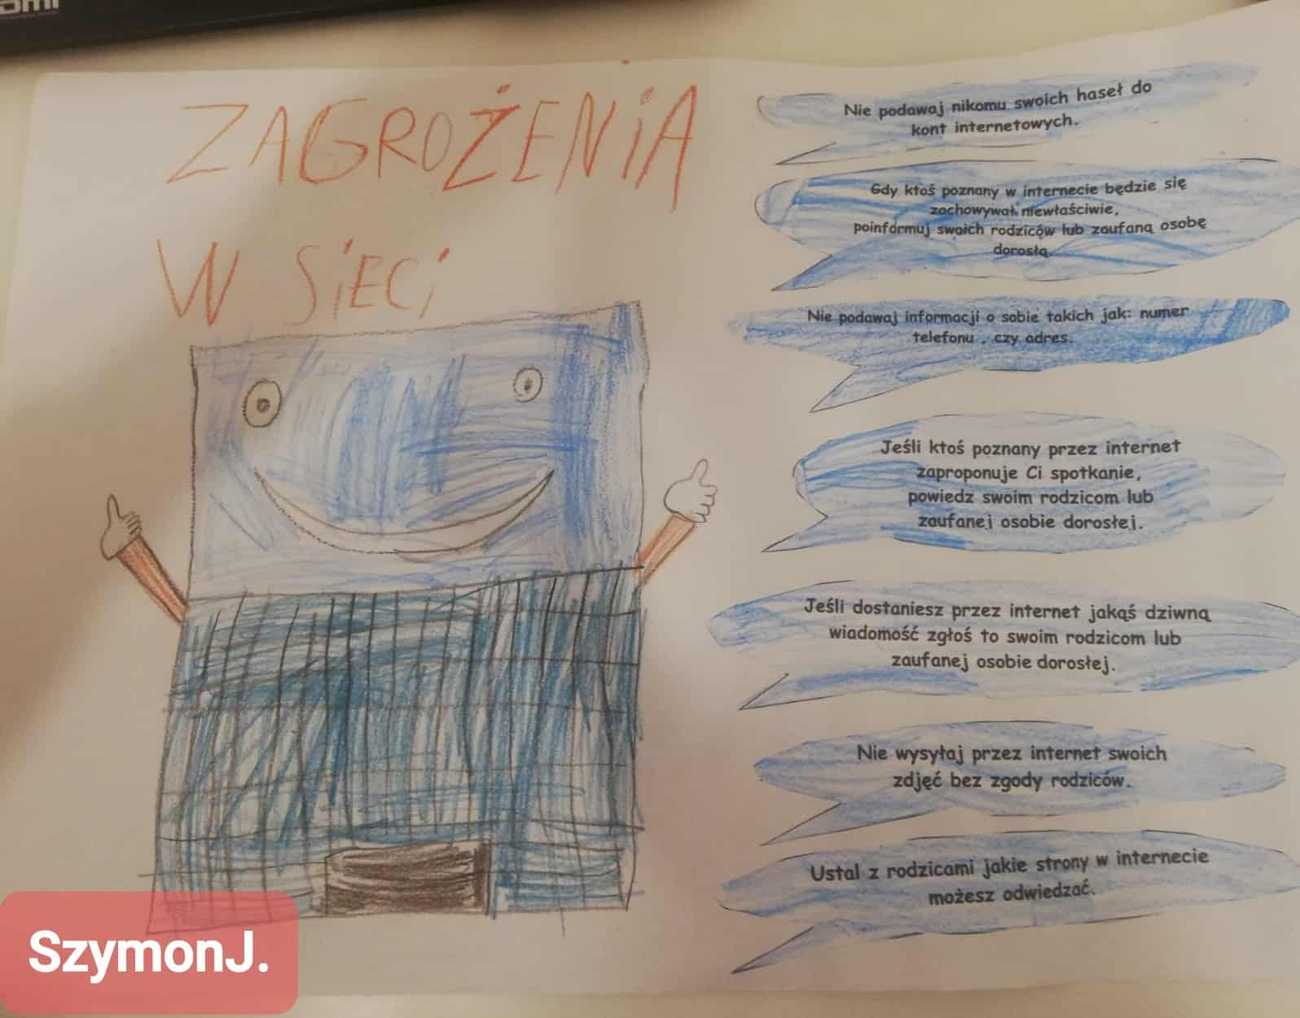 ZAGROŻENIA
W SIECI
Nie podawaj nikomu swoich haseł do
kont internetowych.
Gdy ktoś poznany w internecie będzie się
zachowywał niewłaściwie,
poinformuj swoich rodziców lub zaufaną osobę
dorosłą.
Nie podawaj informacji o sobie takich jak: numer
telefonu , czy adres.
Jeśli ktoś poznany przez internet
zaproponuje Ci spotkanie,
powiedz swoim rodzicom lub
zaufanej osobie dorosłej.
Jeśli dostaniesz przez internet jakąś dziwną
wiadomość zgłoś to swoim rodzicom lub
zaufanej osobie dorosłej.
Nie wysyłaj przez internet swoich
zdjęć bez zgody rodziców.
Ustal z rodzicami jakie strony w internecie
możesz odwiedzać.
SzymonJ.